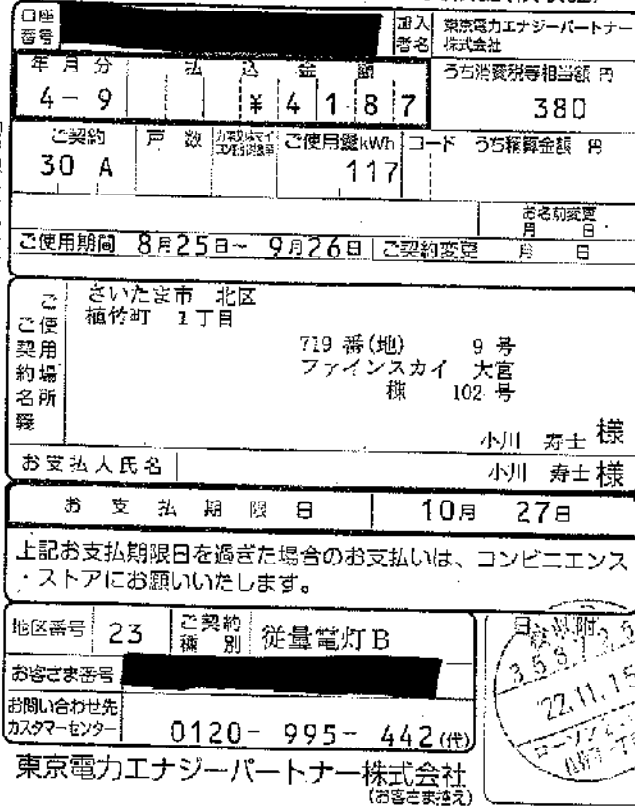 口座番号
加入者名 東京電力エナジーパートナー株式会社
年月分 払込金額 うち消費税等相当額 円
4-9 ¥4187 380
ご契約 戸数 ご使用量kWh コード うち積算金額 円
30 A 117
お名前変更
月 日
ご使用期間 8月25日~ 9月26日 ご契約変更 月 日
ご使用場所
ご契約名義
さいたま市 北区
植竹町 1丁目
719 番(地) 9 号
ファインスカイ 大宮
棟 102 号
小川 寿士 様
お支払人氏名 小川 寿士 様
お支払期限日 10月 27日
上記お支払期限日を過ぎた場合のお支払いは、コンビニエンス
・ストアにお願いいたします。
地区番号 23 ご契約種別 従量電灯B
お客さま番号
お問い合わせ先
カスタマーセンター 0120- 995- 442(代)
東京電力エナジーパートナー株式会社
(お客さま控え)
22.11.15